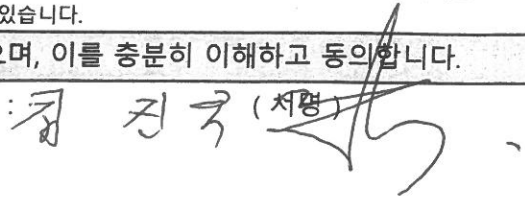 있습니다.
으며, 이를 충분히 이해하고 동의합니다.
: 진국 (서명)